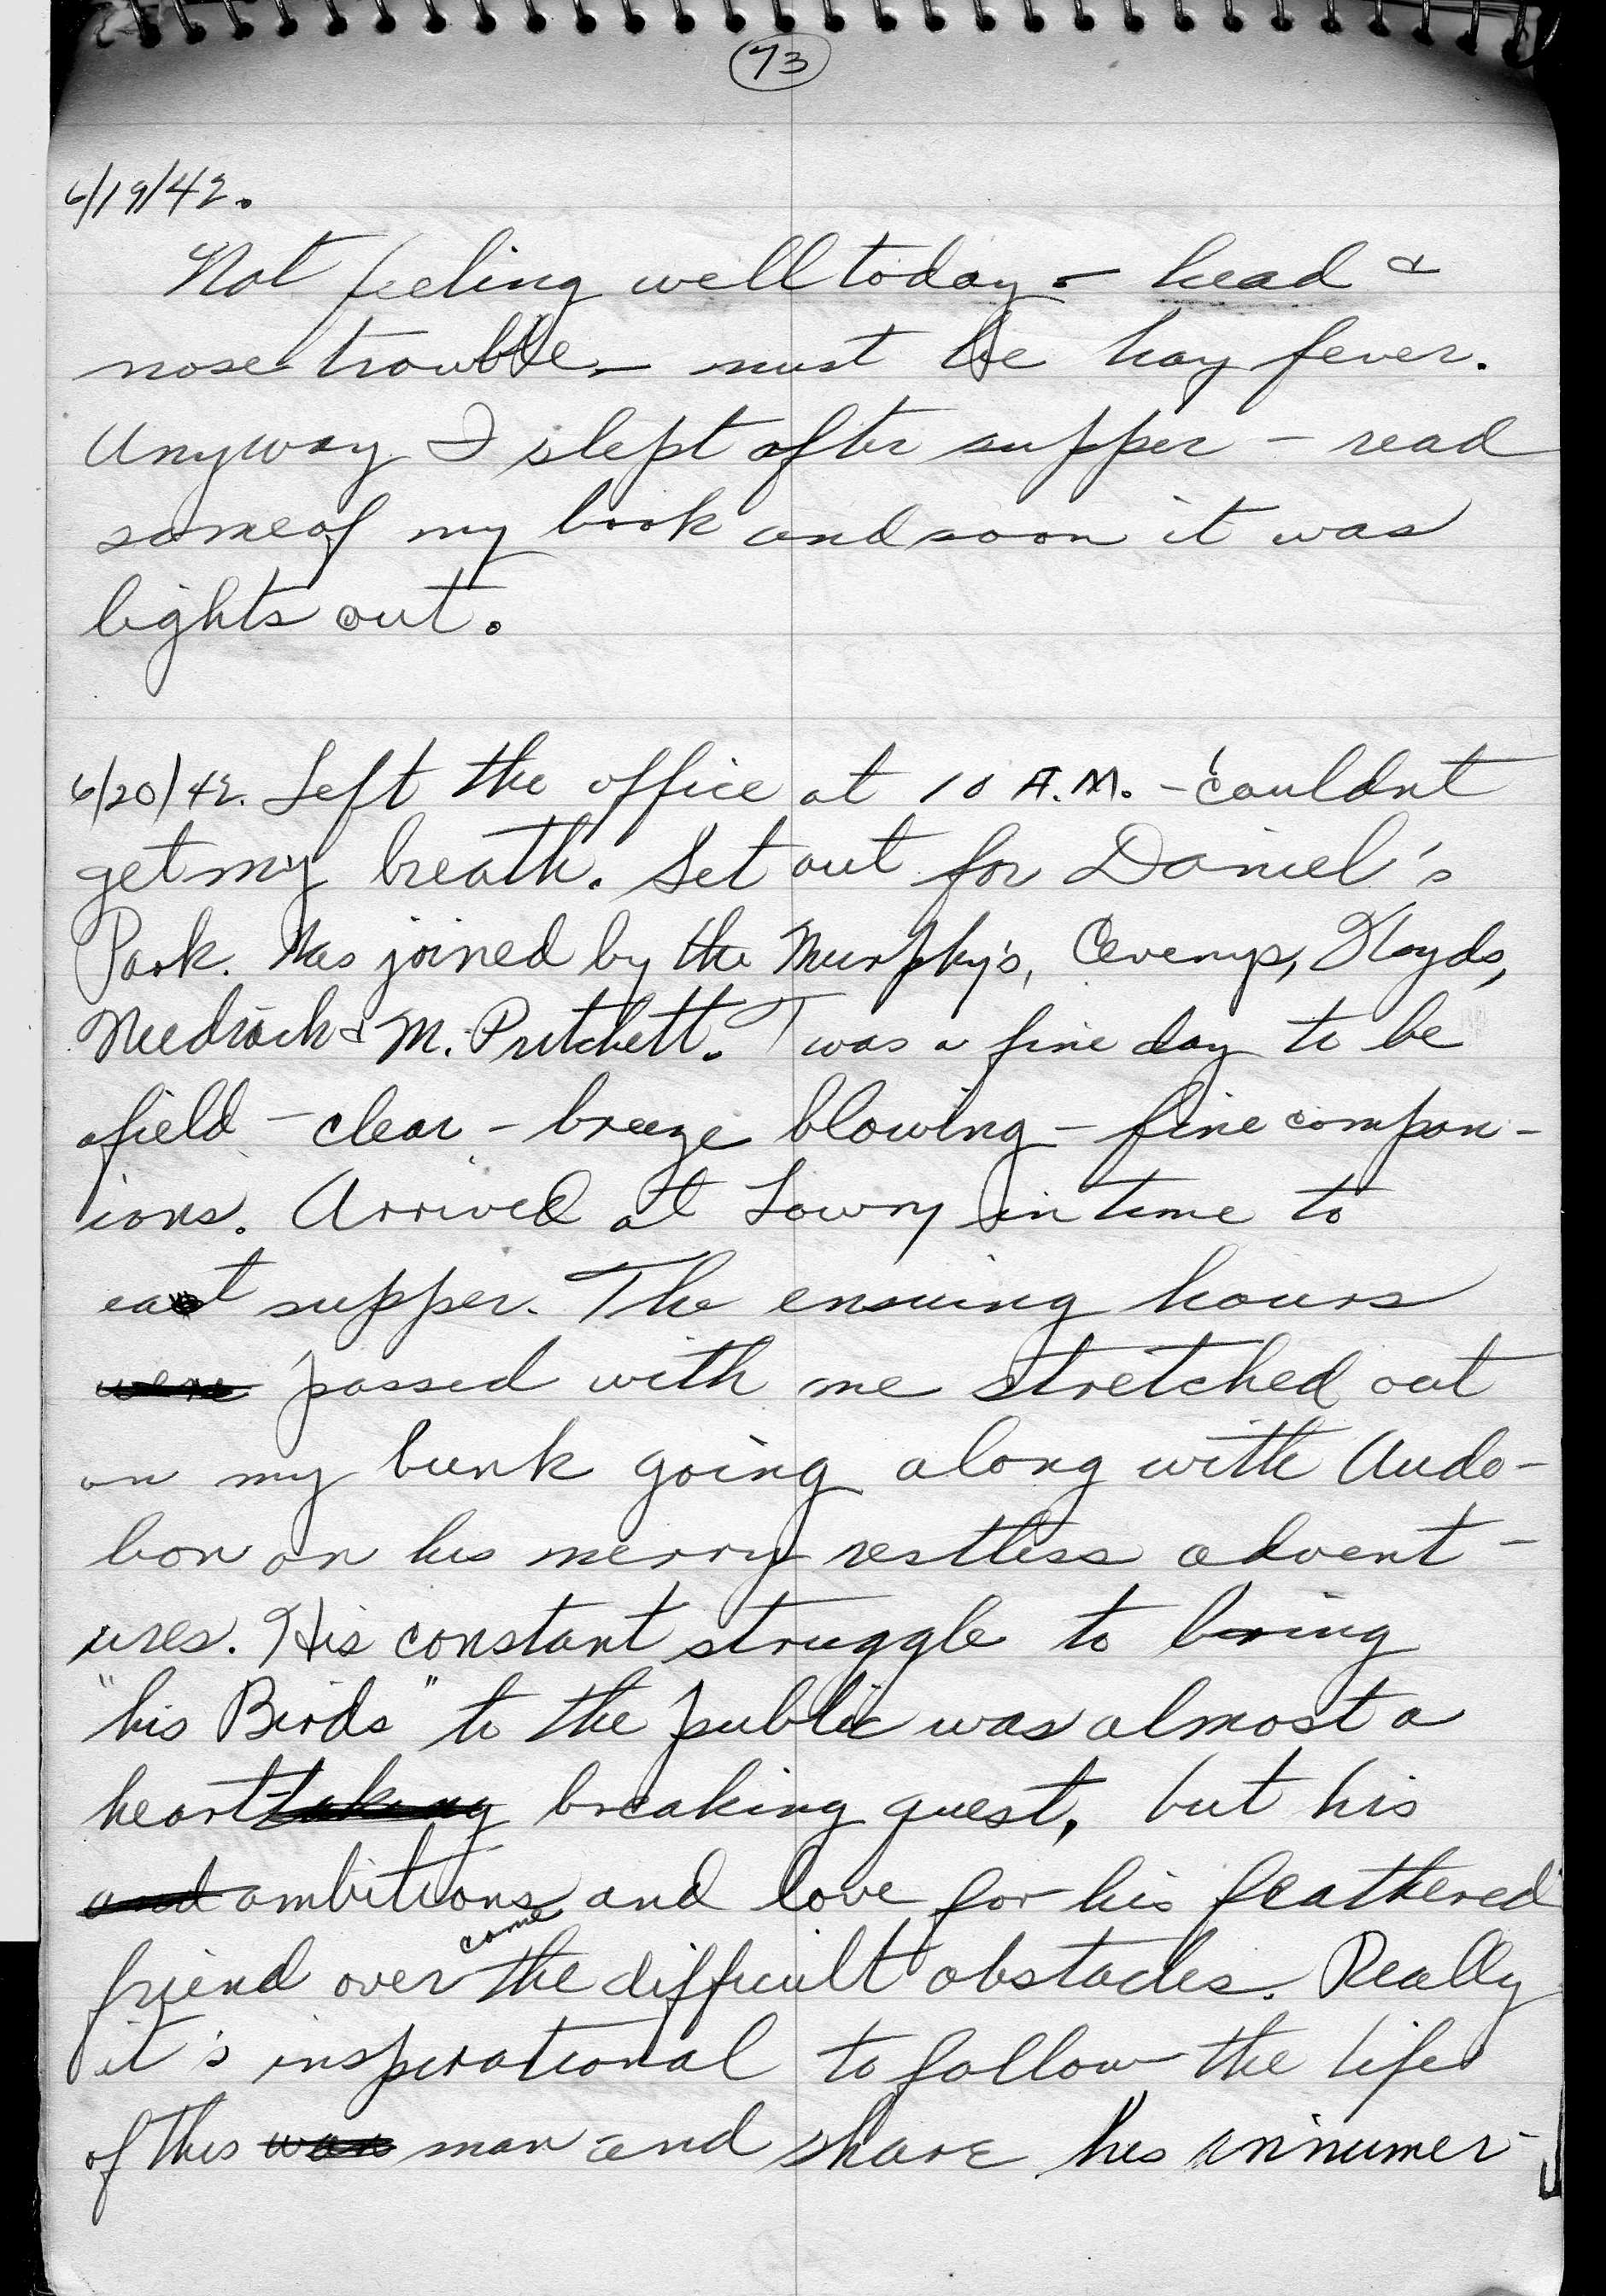 73
6/19/42.
Not feeling well today - head &
nose trouble - must be hay fever.
Anyway I slept after supper - read
some of my book and soon it was
lights out.
6/20/42. Left the office at 10 A.M. - couldn't
get my breath. Set out for Daniel's
Park. Was joined by the Murphy's, Cevenys, Kloyds,
& M. Pritchett. Twas a fine day to be
afield - clear - breeze blowing - fine compan-
ions. Arrived at Lowry in time to
eat supper. The ensuing hours
were passed with me stretched out
on my bunk going along with Audo-
bon on his merry restless advent-
ures. His constant struggle to bring
"his Birds" to the public was almost a
hearttaking breaking quest, but his
and ambitions and love for his feathered
friend over come the difficult obstacles. Really
it's inspirational to follow the life
of this man and share his innumer-